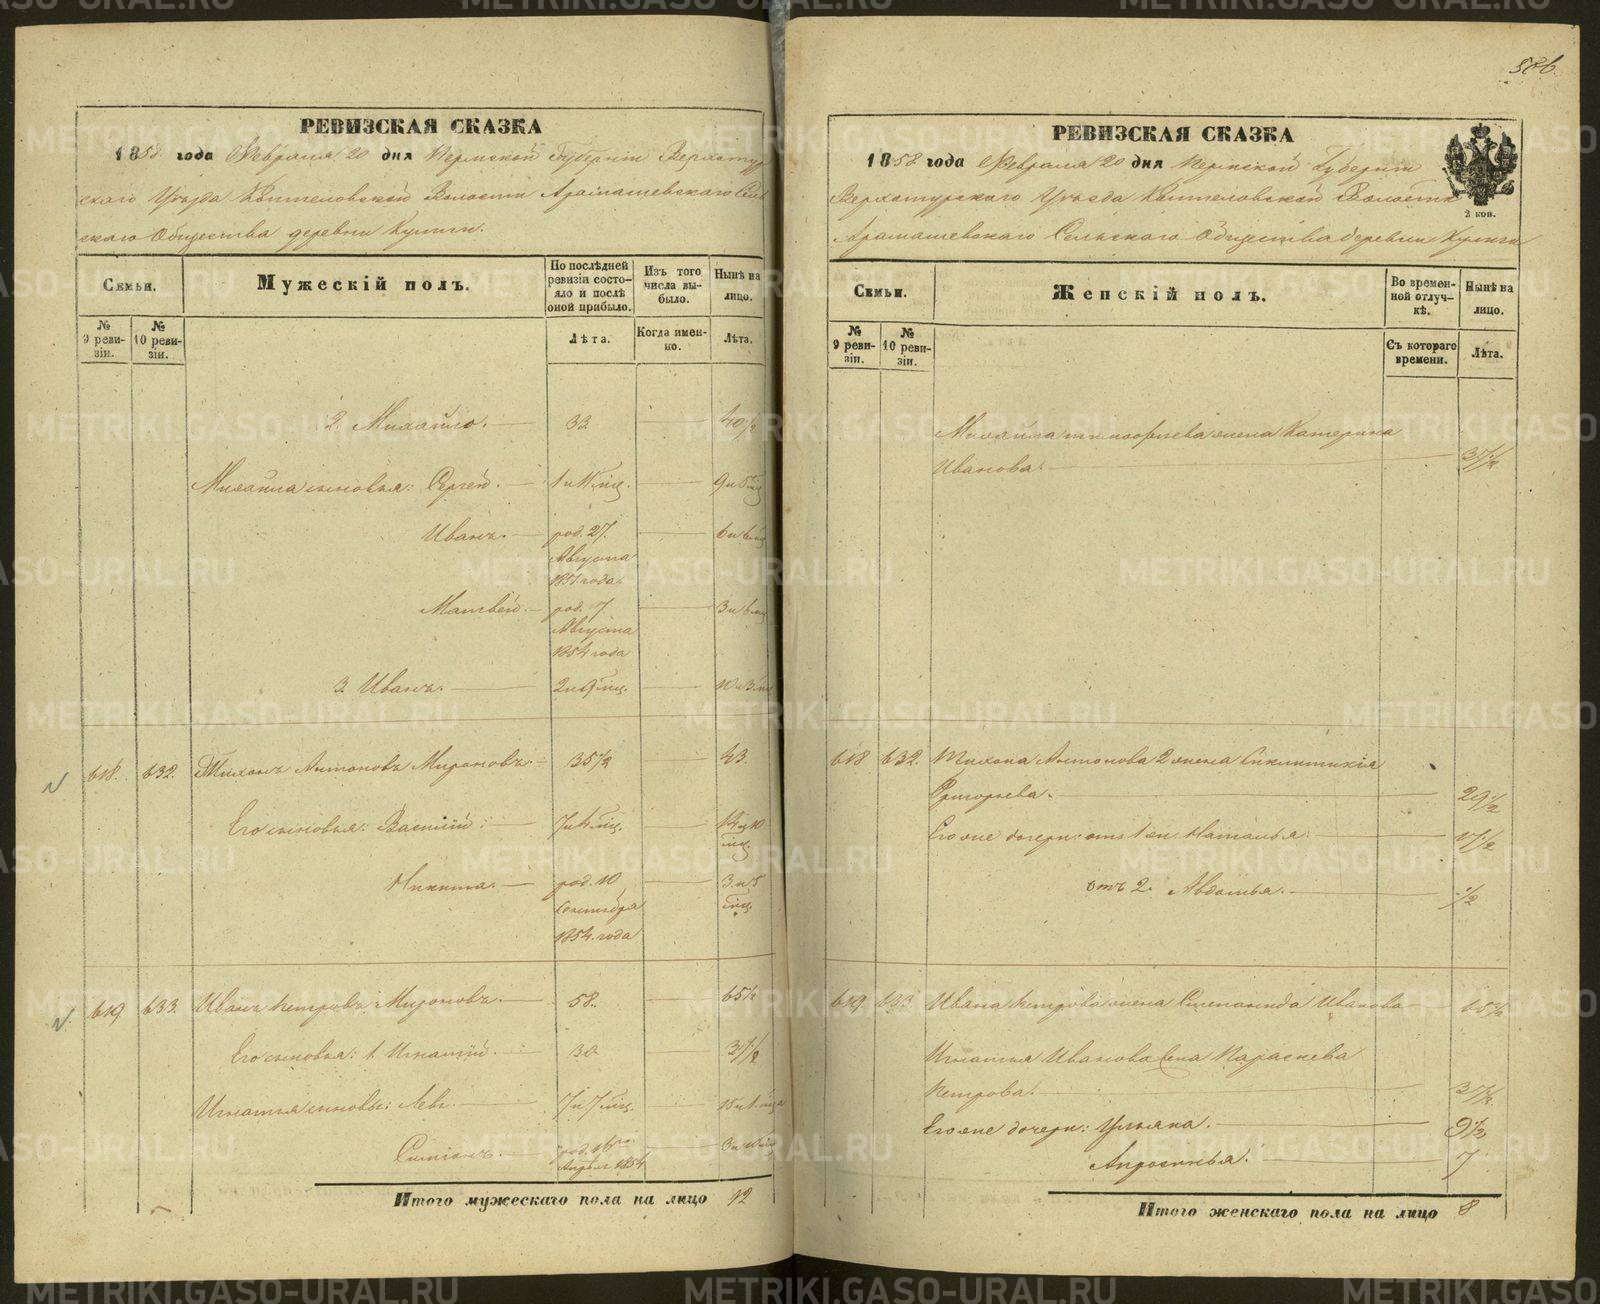 РЕВИЗСКАЯ СКАЗКА
1858 года Февраля 20 дня Пермской Губернии Верхотур
скаго Уезда Коптеловской Волости Арамашевскаго Сель
скаго Общества деревни
Семьи.
Мужескій полъ.
По послѣдней ревизіи состояло и послѣ оной прибыло.
Изъ того числа выбыло.
Нынѣ на лицо.
№ 9 ревизіи.
№ 10 ревизіи.
Лѣта.
Когда именно.
Лѣта.
2. Михайло. 32 40½
Михайла сыновья: Сергей. 1 и 11 мц. 9 и 5 мц
Иванъ. род. 27 Августа 1851 года. 6 и 6 мц
Матвей. род. 7 Августа 1854 года 3 и 6 мц
3. Иванъ. 2 и 9 мц. 10 и 3 мц
618. 632. Тихонъ Антоновъ Мироновъ 35½ 43.
Его сыновья: Василій: 7 и 4 мц. 14 и 10 мц.
Никита. род. 10 Сентября 1854 года 3 и 5 мц.
619 633 Иванъ Петровъ Мироновъ. 58. 65½
Его сыновья: 1. Игнатій. 30 37½
Игнатья сыновья: Левъ. 7 и 7 мц. 15 и 1 мца
Симіонъ. род. 16го Апреля 1854 3 и 10 мц
Итого мужескаго пола на лицо 12
506.
РЕВИЗСКАЯ СКАЗКА
1858 года Февраля 20 дня Пермской Губернии
Верхотурскаго Уезда Коптеловской Волости
Арамашевскаго Сельскаго Общества деревни
2 коп.
Семьи.
Женскій полъ.
Во временной отлучкѣ.
Нынѣ на лицо.
№ 9 ревизіи.
№ 10 ревизіи.
Съ котораго времени.
Лѣта.
Михайла Тимофеева жена Катерина
Иванова. 37½
618 632 Тихона Антонова 2 жена Синклитикія
Григорьева. 29½
Его же дочери: отъ 1 жен. Наталья: 17½
отъ 2. Авдотья. ½
619 633 Ивана Петрова жена Степанида Иванова 65½
Игнатья Иванова жена Параскева
Петрова. 37½
Его же дочери: Ульяна. 9½
Апросинья. 7
Итого женскаго пола на лицо 8
METRIKI.GASO-URAL.RU